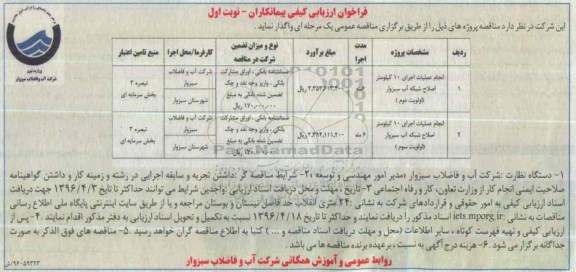 فراخوان ارزیابی کیفی پیمانکاران - نوبت اول
این شرکت در نظر دارد مناقصه پروژه های ذیل را از طریق برگزاری مناقصه عمومی یک مرحله ای واگذار نماید.
ردیف مشخصات پروژه مدت اجرا مبلغ برآورد نوع و میزان تضمین شرکت در مناقصه کارفرما/محل اجرا منبع تامین اعتبار
۱ انجام عملیات اجرای ۱۰ کیلومتر اصلاح شبکه آب سبزوار (اولویت دوم) ریال ضمانتنامه بانکی، اوراق مشارکت بانکی، واریز وجه نقد و چک تضمین شده بانکی به مبلغ ۱۷۰,۰۰۰,۰۰۰ ریال شرکت آب و فاضلاب سبزوار شهرستان سبزوار تبصره ۳ بخش سرمایه ای
۲ انجام عملیات اجرای ۱۰ کیلومتر اصلاح شبکه آب سبزوار (اولویت سوم) ۶ ماه ریال ضمانتنامه بانکی، اوراق مشارکت بانکی، واریز وجه نقد و چک تضمین شده بانکی به مبلغ ۱۷۰,۰۰۰,۰۰۰ ریال شرکت آب و فاضلاب سبزوار شهرستان سبزوار تبصره ۳ بخش سرمایه ای
۱- دستگاه نظارت :شرکت آب و فاضلاب سبزوار «مدیر امور مهندسی و توسعه» ۲- شرایط مناقصه گر :داشتن تجربه و سابقه اجرایی در رشته و زمینه کار و داشتن گواهینامه
صلاحیت ایمنی انجام کار از وزارت تعاون، کار و رفاه اجتماعی ۳- تاریخ ، مهلت و محل دریافت اسناد ارزیابی :واجدین شرایط می توانند حداکثر تا تاریخ ۱۳۹۶/۴/۳ جهت دریافت
اسناد ارزیابی کیفی به امور حقوقی و قراردادهای شرکت به نشانی :۲۴ متری انقلاب حد فاصل بیستون و بوستان مراجعه و یا از طریق سایت اینترنتی پایگاه ملی اطلاع رسانی
مناقصات به نشانی :iets.mporg.ir اسناد مذکور را دریافت نمایند و حداکثر تا تاریخ ۱۳۹۶/۴/۱۸ نسبت به تکمیل و تحویل اسناد ارزیابی به دفتر مذکور اقدام نمایند .۴- پس از
ارزیابی کیفی و تهیه فهرست کوتاه ، سایر اطلاعات (محل و مهلت دریافت اسناد مناقصه و ... ) کتبا به اطلاع مناقصه گران خواهد رسید .۵- مناقصه های فوق الذکر به صورت
جداگانه برگزار می شود .۶- هزینه درج آگهی به نسبت ، برعهده برنده مناقصه ها می باشد .
روابط عمومی و آموزش همگانی شرکت آب و فاضلاب سبزوار